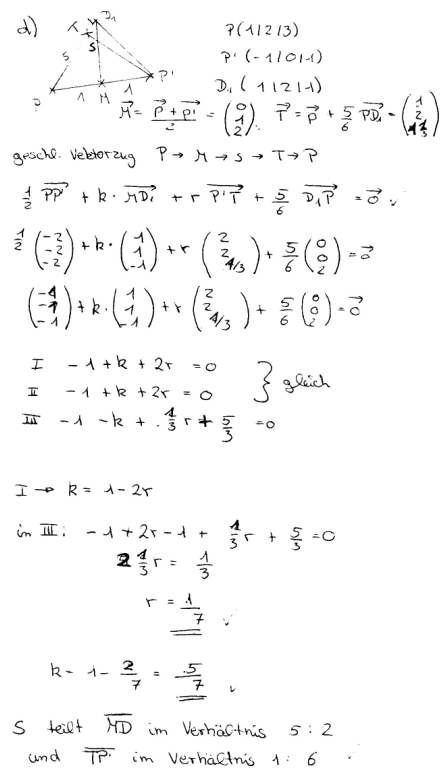 d)
D₁
T
S
s
P'
1 1
P M
P(1|2|3)
P'(-1|0|1)
D₁(1|2|1)
M⃗ = (P⃗ + P⃗')/2 = (0 1 2), T⃗ = P⃗ + 5/6 PD₁⃗ = (1 2 4/3)
geschl. Vektorzug P → M → S → T → P
1/2 PP'⃗ + k · MD₁⃗ + r P'T⃗ + 5/6 D₁P⃗ = 0⃗ ✓
1/2 (-2 -2 -2) + k · (1 1 -1) + r (2 2 1/3) + 5/6 (0 0 2) = 0⃗
(-1 -1 -1) + k · (1 1 -1) + r (2 2 1/3) + 5/6 (0 0 2) = 0⃗
I -1 + k + 2r = 0
II -1 + k + 2r = 0 } gleich
III -1 - k + 1/3 r + 5/3 = 0
I → k = 1 - 2r
in III: -1 + 2r - 1 + 1/3 r + 5/3 = 0
2 1/3 r = 1/3
r = 1/7 ✓
k = 1 - 2/7 = 5/7 ✓
S teilt MD im Verhältnis 5 : 2
und TP' im Verhältnis 1 : 6 ✓